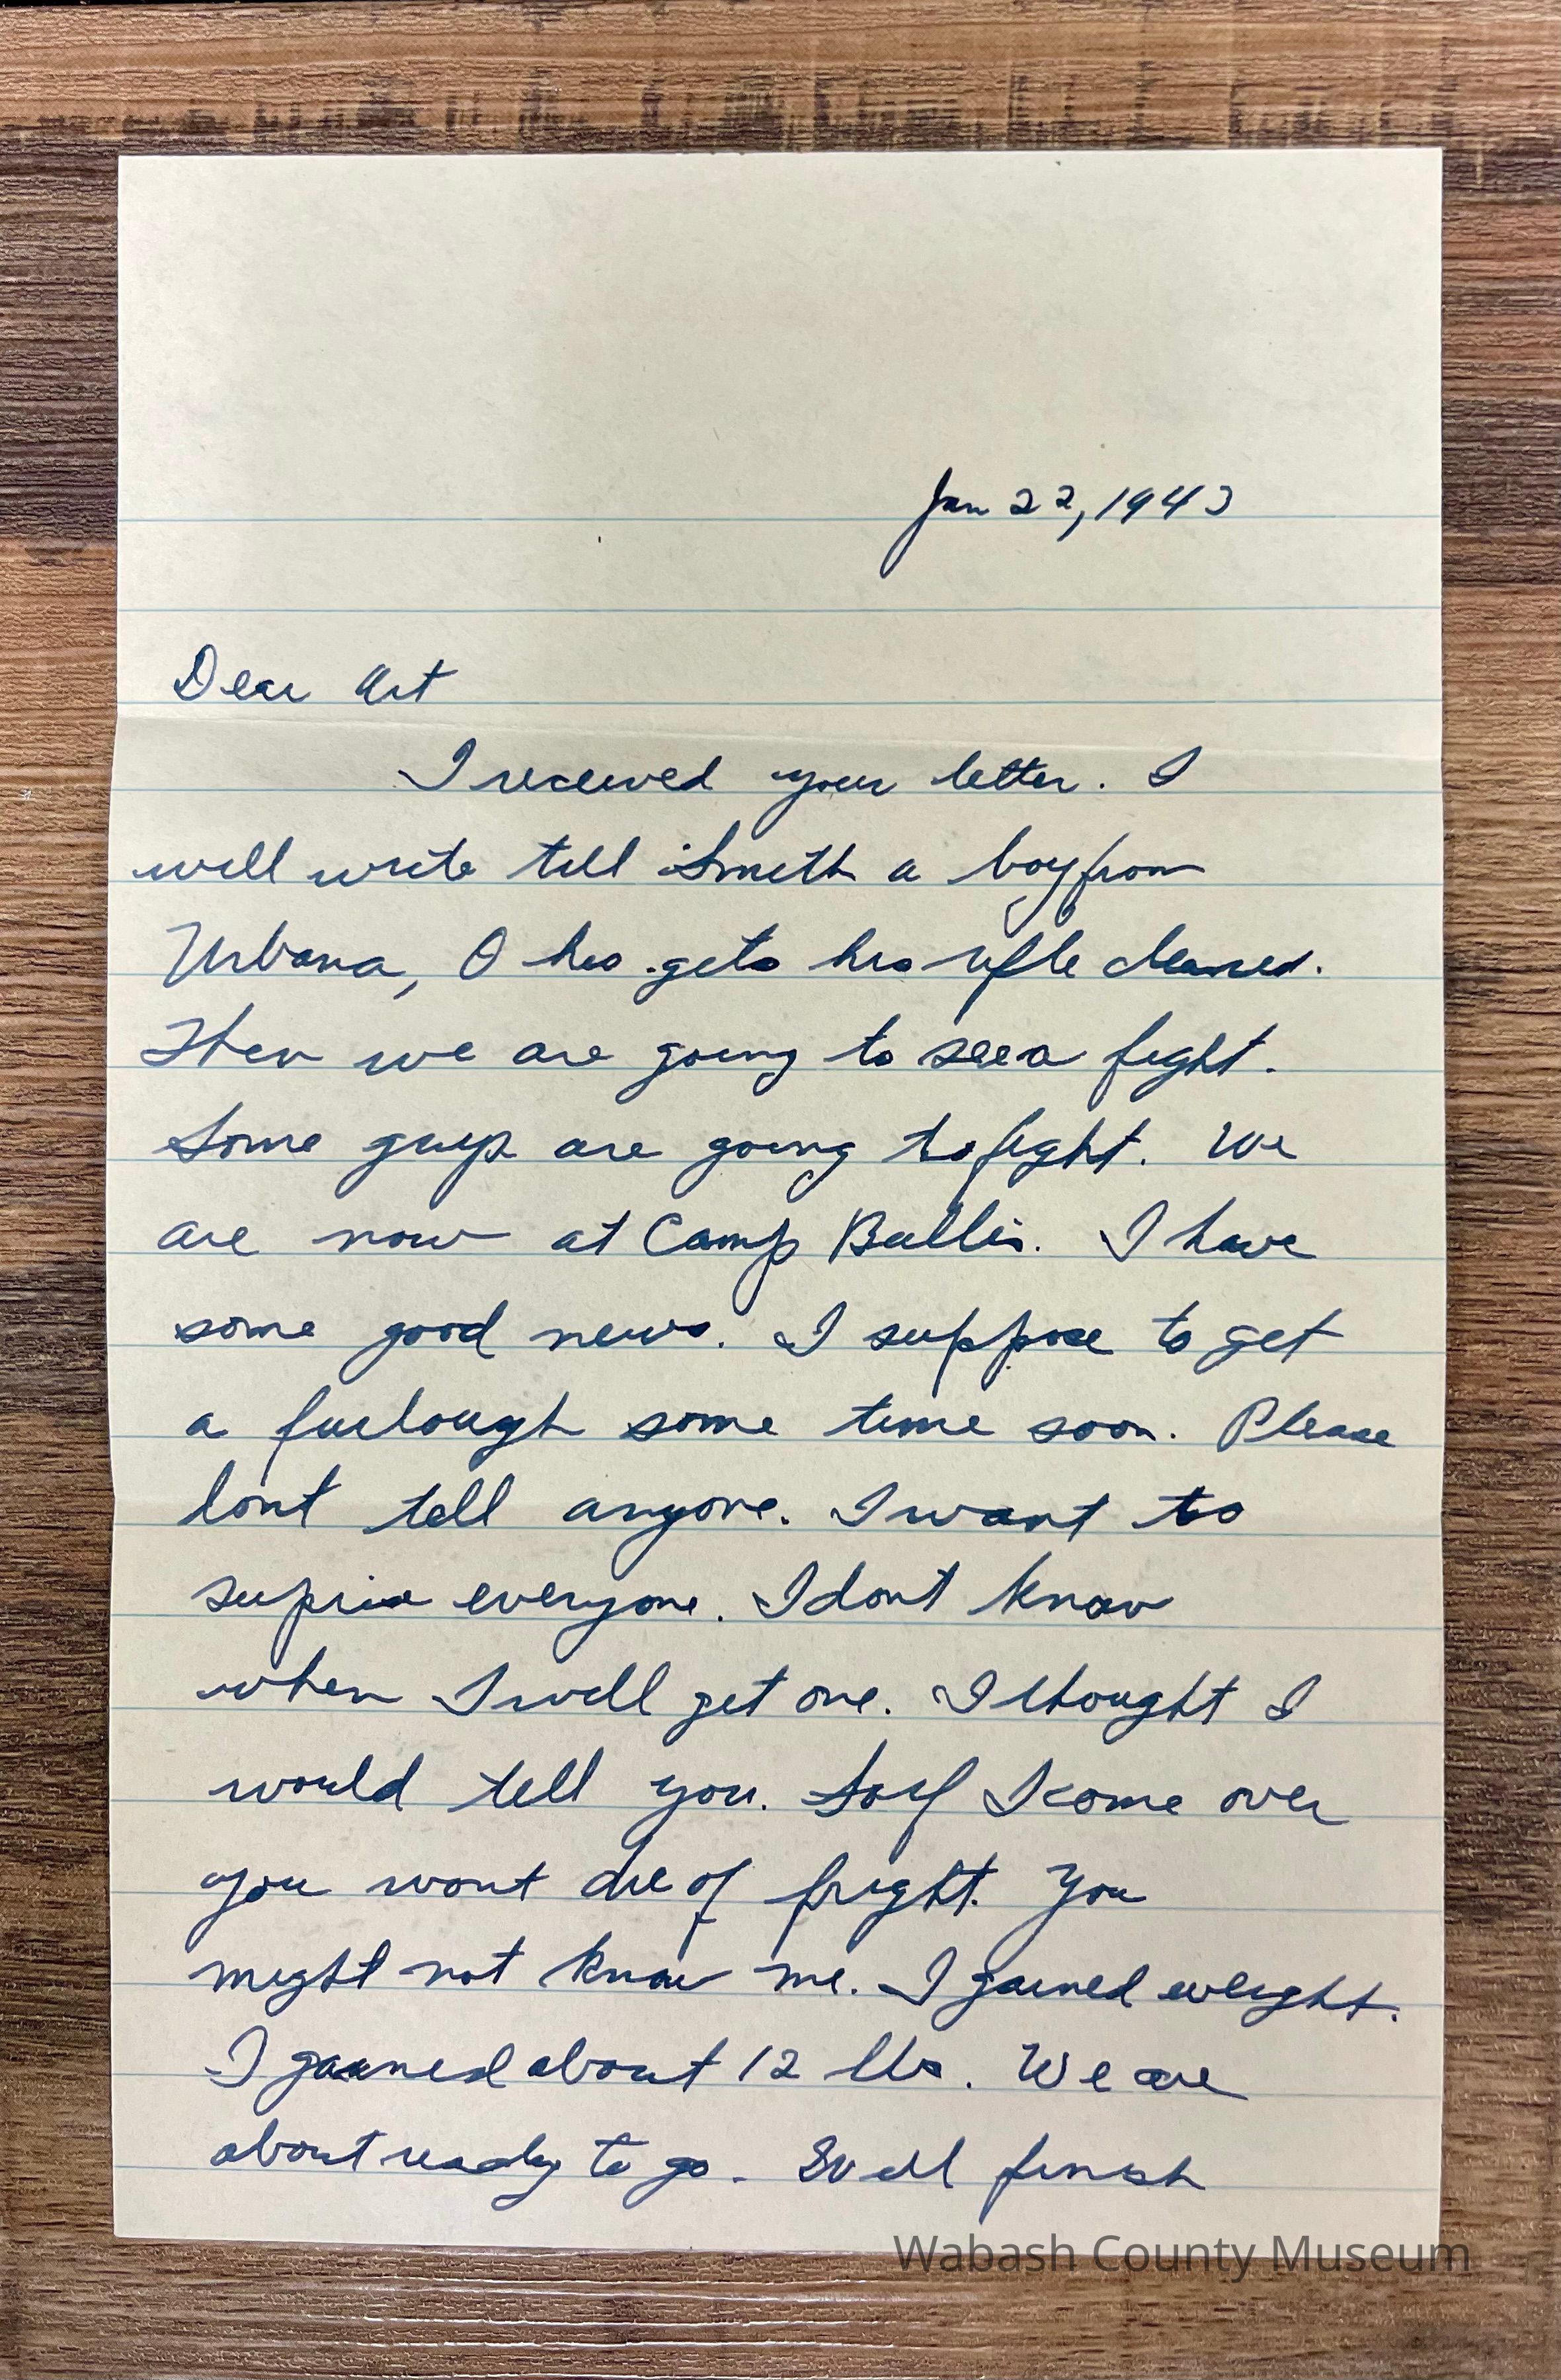 Jan 22, 1943
Dear Art
I received your letter. I
will write till Smith a boy from
Urbana, O has gets his rifle cleaned.
Then we are going to see a fight.
Some guys are going to fight. We
are now at Camp Bullis. I have
some good news. I suppose to get
a furlough some time soon. Please
dont tell anyone. I want to
suprise everyone. I dont know
when I will get one. I thought I
would tell you. So if I come over
you wont die of fright. You
might not know me. I gained weight.
I gained about 12 lbs. We are
about ready to go. I will finish
Wabash County Museum